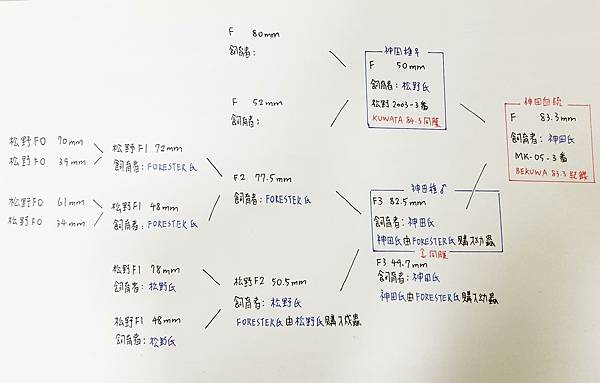 F 80mm
飼育者:
F 52mm
飼育者:
神田種♀
F 50mm
飼育者: 松野氏
松野 2003-3番
KUWATA 84.3同腹
神田血統
F 83.3mm
飼育者: 神田氏
MK-05-3番
BEKUWA 83.3紀錄
松野F0 70mm
松野F0 39mm
松野F1 72mm
飼育者: FORESTER氏
松野F0 61mm
松野F0 34mm
松野F1 48mm
飼育者: FORESTER氏
F2 77.5mm
飼育者: FORESTER氏
松野F1 78mm
飼育者: 松野氏
松野F1 48mm
飼育者: 松野氏
松野F2 50.5mm
飼育者: 松野氏
FORESTER氏由松野氏購入成蟲
神田種♂
F3 82.5mm
飼育者: 神田氏
神田氏由FORESTER氏購入幼蟲
↕同腹
F3 49.7mm
飼育者: 神田氏
神田氏由FORESTER氏購入幼蟲